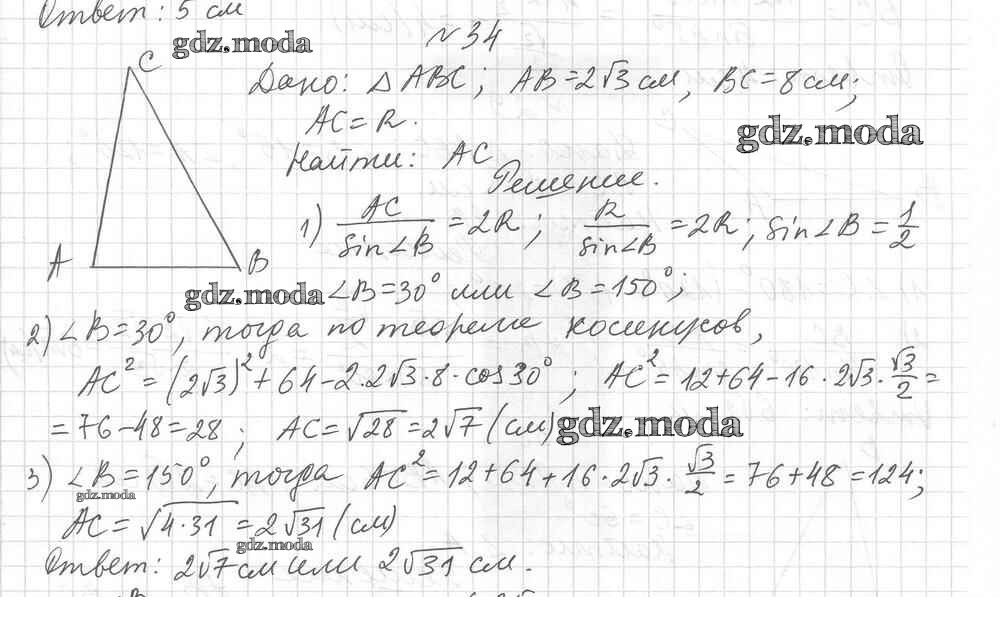 Ответ: 5 см
gdz.moda
№34
C
Дано: △ABC; AB=2√3 см, BC=8 см;
AC=R.
gdz.moda
Найти: AC
Решение.
1) AC/sin∠B = 2R; R/sin∠B = 2R; sin∠B = 1/2
A
B
gdz.moda
∠B=30° или ∠B=150°;
2) ∠B=30°, тогда по теореме косинусов,
AC² = (2√3)² + 64 – 2·2√3·8·cos30°; AC² = 12+64–16·2√3·√3/2 =
= 76–48=28; AC=√28=2√7 (см)
gdz.moda
3) ∠B=150°, тогда AC² = 12+64+16·2√3·√3/2 = 76+48=124;
gdz.moda
AC=√4·31 = 2√31 (см)
gdz.moda
Ответ: 2√7 см или 2√31 см.